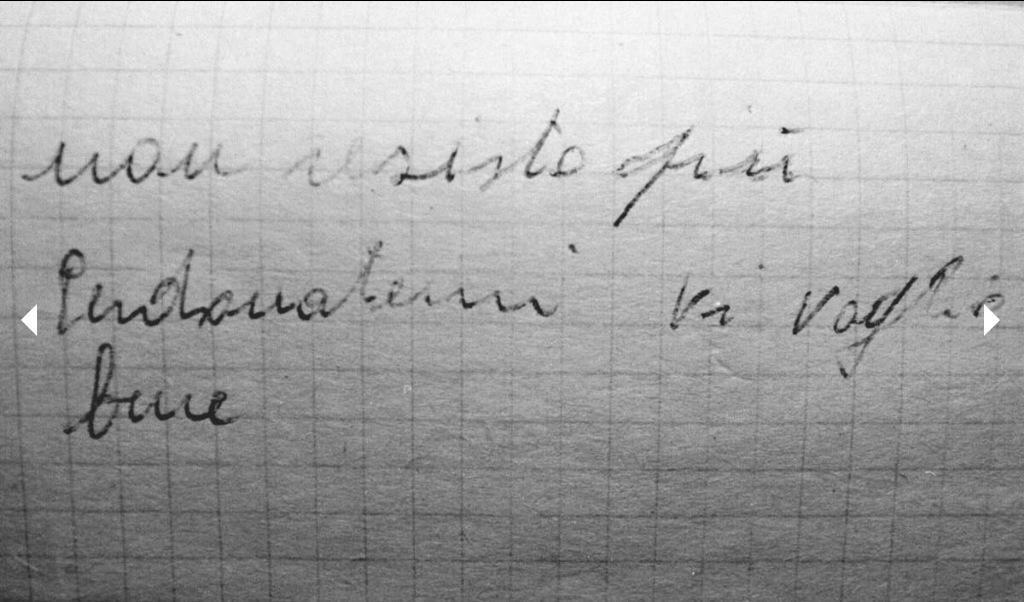 non resisto più
Perdonatemi vi voglio
bene